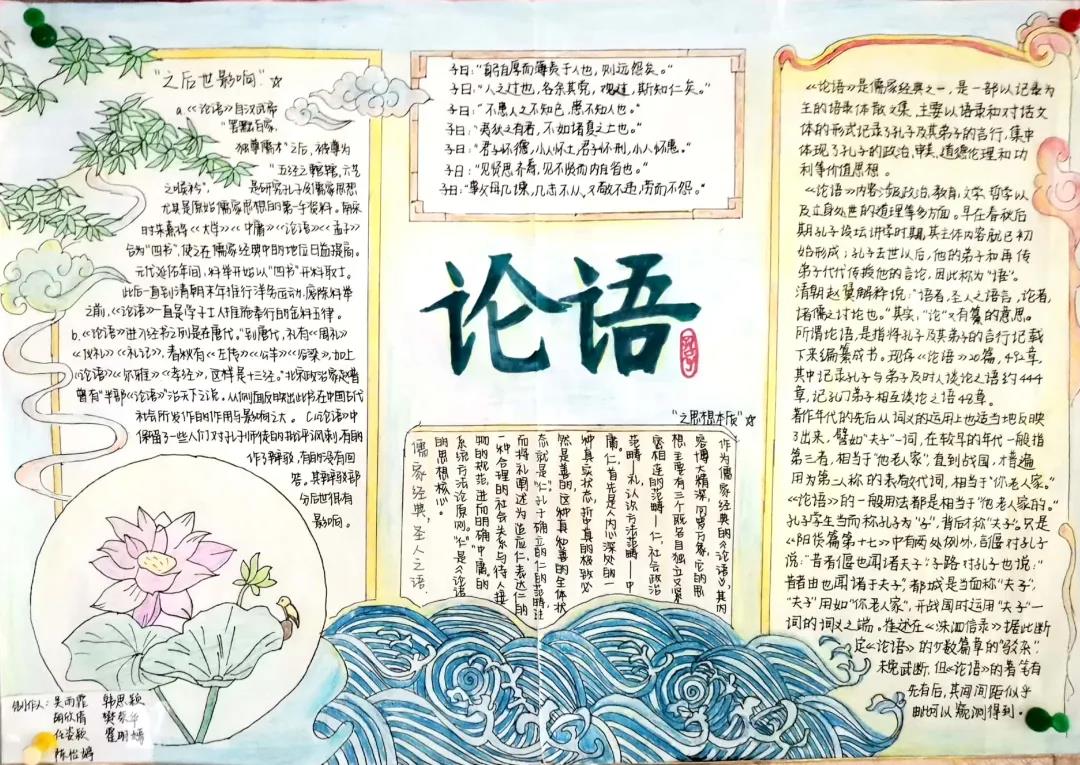 "之后世影响"☆
a.《论语》自汉武帝
"罢黜百家,
独尊儒术"之后,被尊为
"五经之輨辖,六艺
之喉衿",是研究孔子及儒家思想
尤其是原始儒家思想的第一手资料。南宋
时朱熹将《大学》《中庸》《论语》《孟子》
合为"四书",使之在儒家经典中的地位日益提高。
元代延佑年间,科举开始以"四书"开科取士。
此后一直到清朝末年推行洋务运动,废除科举
之前,《论语》一直是学子士人推施奉行的金科玉律。
b.《论语》进入经书之列是在唐代。"到唐代,礼有《周礼》
《仪礼》《礼记》,春秋有《左传》《公羊》《谷梁》,加上
《论语》《尔雅》《孝经》,这样是十三经。"北宋政治家赵普
曾有"半部《论语》治天下"之说。从侧面反映出此书在中国古代
社会所发挥的作用与影响之大。 C.《论语》中
保留了一些人们对孔子师徒的批评讽刺,有的
作了辩驳,有的没有回
答。其辩驳部
分后世很有
影响。
子曰:"躬自厚而薄责于人也,则远怨矣。"
子曰:"人之过也,各余其党,观过,斯知仁矣。"
子曰:"不患人之不知己,患不知人也。"
子曰:"夷狄之有君,不如诸夏之亡也。"
子曰:"君子怀德,小人怀土,君子怀刑,小人怀惠。"
子曰:"见贤思齐焉,见不贤而内自省也。"
子曰:"事父母几谏,几志不从,又敬不违,劳而不怨。"
论语
"之思想本质"☆
作为儒家经典的《论语》,其内
容博大精深,包罗万象,它的思
想主要有三个既各自独立又紧
密相连的范畴——仁,社会政治
范畴——礼,认识方法范畴——中
庸。仁,首先是人内心深处的一
种真实状态,折中真的极致必
然是善的,这种真和善的全体状
态就是"仁"孔子确立的仁的范畴,进
而将礼阐述为适应仁、表达仁的
一种合理的社会关系与待人接
物的规范,进而明确"中庸"的
系统方法论原则。"仁"是《论语》
的思想核心。
儒家经典,圣人之语
《论语》是儒家经典之一,是一部以记录为
主的语录体散文集,主要以语录和对话文
体的形式记录孔子及其弟子的言行,集中
体现了孔子的政治,审美,道德伦理和功
利等价值思想。
《论语》内容涉及政治,教育,文学,哲学以
及立身处世的道理等多方面。早在春秋后
期孔子设坛讲学时期,其主体内容就已初
始形成;孔子去世以后,他的弟子和再传
弟子代代传授他的言论,因此称为"语"。
清朝赵翼解释说:"语者,圣人之语言,论者,
诸儒之讨论也。"其实,"论"又有纂的意思。
所谓论语,是指将孔子及其弟子的言行记载
下来编纂成书。现存《论语》20篇,492章,
其中记录孔子与弟子及时人谈论之语约444
章,记孔门弟子相互谈论之语48章。
著作年代的先后从词义的运用上也适当地反映
了出来,譬如"夫子"一词,在较早的年代一般指
第三者,相当于"他老人家",直到战国,才普遍
用为第二人称的表敬代词,相当于"你老人家。"
《论语》的一般用法都是相当于"他老人家的。"
孔子学生当面称孔子为"子",背后称"夫子"。只是
《阳货篇第十七》中有两处例外,言偃对孔子
说:"昔者偃也闻诸夫子"子路对孔子也说:"
昔者由也闻诸于夫子",都城是当面称"夫子",
"夫子"用如"你老人家",开战国时运用"夫子"一
词的词义之端。崔述在《洙泗信录》据此断
定《论语》的少数篇章的"驳杂".
未免武断,但《论语》的著笔有
先有后,其间间距似乎
由此可以窥测得到。
制作人:吴雨霏 韩思颖
胡欣倩 樊荣华
任姿颖 霍明嫣
陈怡婷